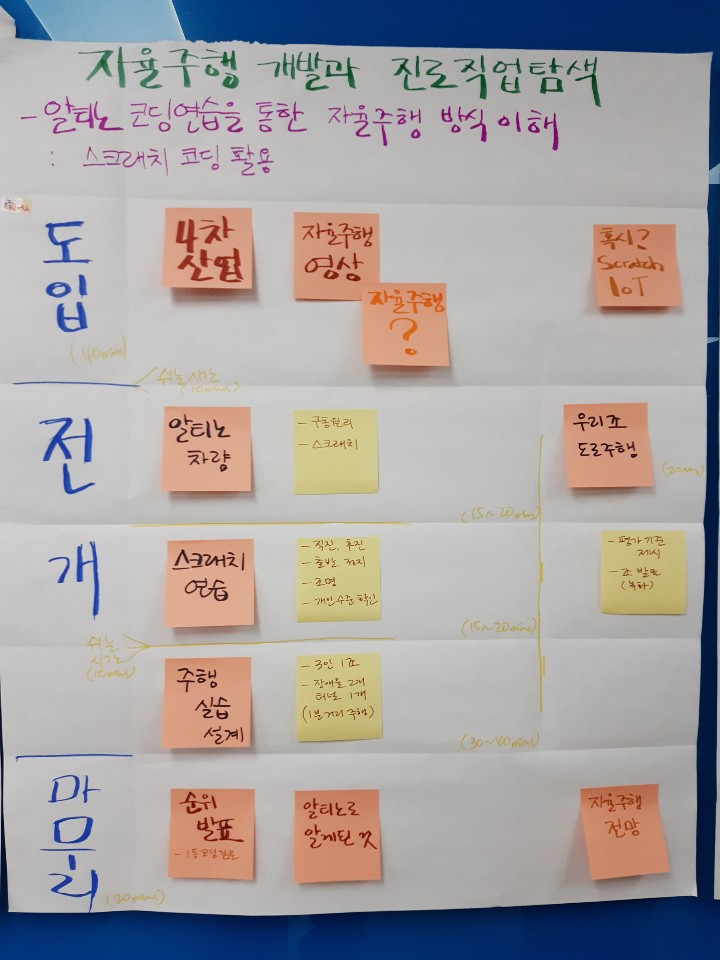 자율주행 개발과 진로직업탐색
- 알티노 코딩연습을 통한 자율주행 방식 이해
: 스크래치 코딩 활용
도입
(40mins)
4차
산업
자율주행
영상
자율주행
?
혹시?
Scratch
IoT
쉬는시간
(10mins)
전개
알티노
차량
- 구동원리
- 스크래치
(15~20mins)
우리조
도로주행
(20mins)
스크래치
연습
- 직진, 후진
- 출발, 정지
- 조명
- 개인수준 확인
(15~20mins)
- 평가기준
제시
- 조 발표
(녹화)
쉬는
시간
(10mins)
주행
실습
설계
- 3인 1조
- 장애물 2개
터널 1개
(1분거리 주행)
(30~40mins)
마무리
(20mins)
순위
발표
- 1등 코딩
알티노로
알게된 것
자율주행
전망